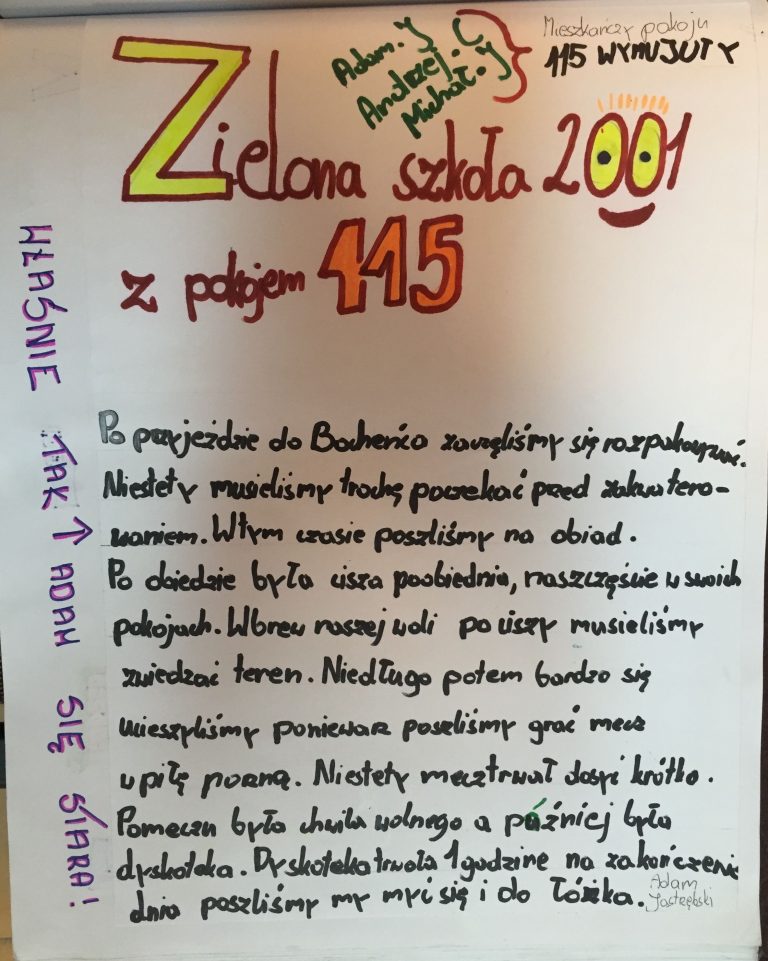 Adam. J
Andrzej. C
Michał. J
Mieszkańcy pokoju
115 WYMIJUTY
Zielona szkoła 2001
z pokojem 115
WŁAŚNIE TAK ↑ ADAM SIĘ SIARA!
Po przyjeździe do Bocheńco zaczęliśmy się rozpakowywać.
Niestety musieliśmy trochę poczekać przed zakwatero-
waniem. Wtym czasie poszliśmy na obiad.
Po obiedzie była cisza poobiednia, naszczęście w swoich
pokojach. Wbrew naszej woli po ciszy musieliśmy
zwiedzać teren. Niedługo potem bardzo się
ucieszyliśmy ponieważ poszliśmy grać mecz
w piłę nożną. Niestety mecz trwał dość krótko.
Pomeczu była chwila wolnego a później była
dyskoteka. Dyskoteka trwała 1 godzine na zakończenie
dnia poszliśmy my myć się i do łóżka.
Adam
Jastrzębski